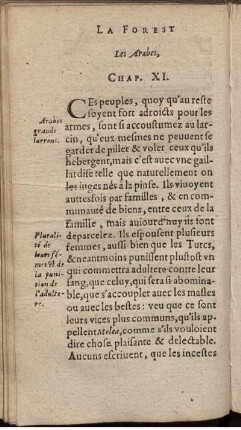 LA FOREST
Les Arabes,
CHAP. XI.
Arabes
grands
larrons.
CEs peuples, quoy qu'au reste
soyent fort adroicts pour les
armes, sont si accoustumez au lar-
cin, qu'eux-mesmes ne peuuent se
garder de piller & voler ceux qu'ils
hebergent, mais c'est auec vne gail-
lardise telle que naturellement on
les iuges nés à la pinse. Ils viuoyent
autresfois par familles, & en com-
munauté de biens, entre ceux de la
famille, mais auiourd'huy ils sont
Plurali-
té de
leurs fé-
mes & de
la puni-
tion de
l'adulte-
re.
deparcelez. Ils espousent plusieurs
femmes, aussi-bien que les Turcs,
& neantmoins punissent plustost vn
qui commettra adultere contre leur
sang, que celuy, qui sera si abomina-
ble, que s'accoupler auec les masles
ou auec les bestes: veu que ce sont
leurs vices plus communs, qu'ils ap-
pellent Melea, comme s'ils vouloient
dire chose plaisante & delectable.
Aucuns escriuent, que les incestes